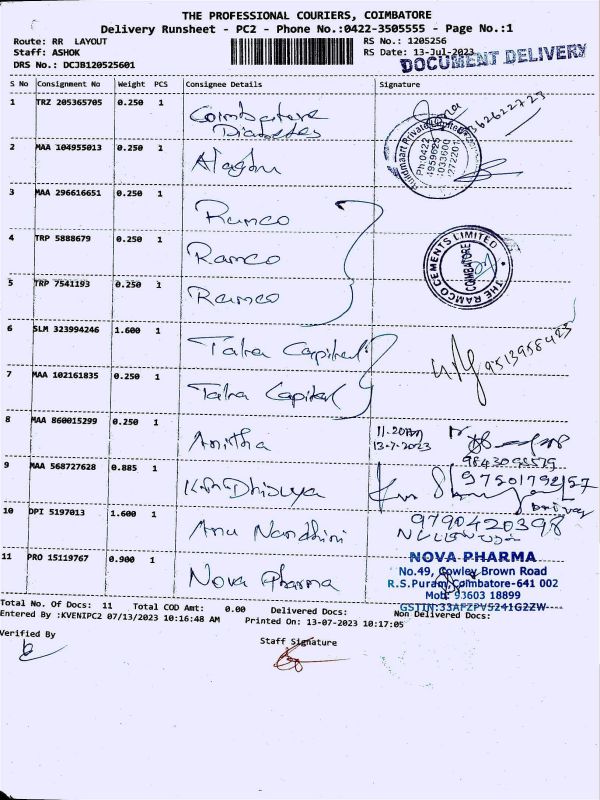 THE PROFESSIONAL COURIERS, COIMBATORE
Delivery Runsheet - PC2 - Phone No.:0422-3505555 - Page No.:1
Route: RR LAYOUT
RS No.: 1205256
Staff: ASHOK
RS Date: 13-Jul-2023
DOCUMENT DELIVERY
DRS No.: DCJB120525601
S No Consignment No Weight PCS Consignee Details Signature
1 TRZ 205365705 0.250 1 Coimbatore Diabetes
2 MAA 104955013 0.250 1 Alagon
3 MAA 296616651 0.250 1 Ramco
4 TRP 5888679 0.250 1 Ramco
THE RAMCO CEMENTS LIMITED
COIMBATORE
5 TRP 7541193 0.250 1 Ramco
6 SLM 323994246 1.600 1 Tata Capital
9513958423
7 MAA 102161835 0.250 1 Tata Capital
8 MAA 860015299 0.250 1 Anitha
11.20AM
13-7-2023
9 MAA 568727628 0.885 1 K.R.Dhivya
10 DPI 5197013 1.600 1 Anu Nandhini
9790420398
11 PRO 15119767 0.900 1 Nova Pharma
NOVA PHARMA
No.49, Cowley Brown Road
R.S.Puram,Coimbatore-641 002
Mob: 93603 18899
GSTIN:33AFZPV5241G2ZW
Total No. Of Docs: 11 Total COD Amt: 0.00 Delivered Docs: Non Delivered Docs:
Entered By :KVENIPC2 07/13/2023 10:16:48 AM Printed On: 13-07-2023 10:17:05
Verified By
Staff Signature